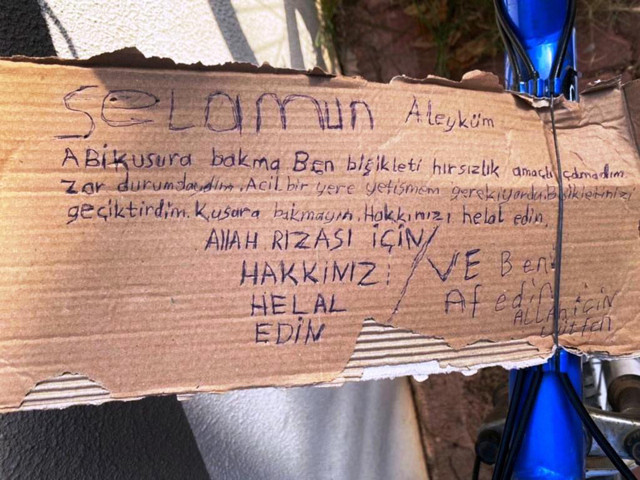 Selamun Aleyküm
ABİ kusura bakma Ben bişikleti hırsızlık amaçlı çalmadım.
Zor durumdaydım. Acil bir yere yetişmem gerekiyordu. Bisikletinizi
geçiktirdim. Kusura bakmayın. Hakkınızı helal edin
Allah RIZASI İÇİN
HAKKINIZI
HELAL
EDİN
VE Beni
Af edin
ALLAH İÇİN
Lütfen